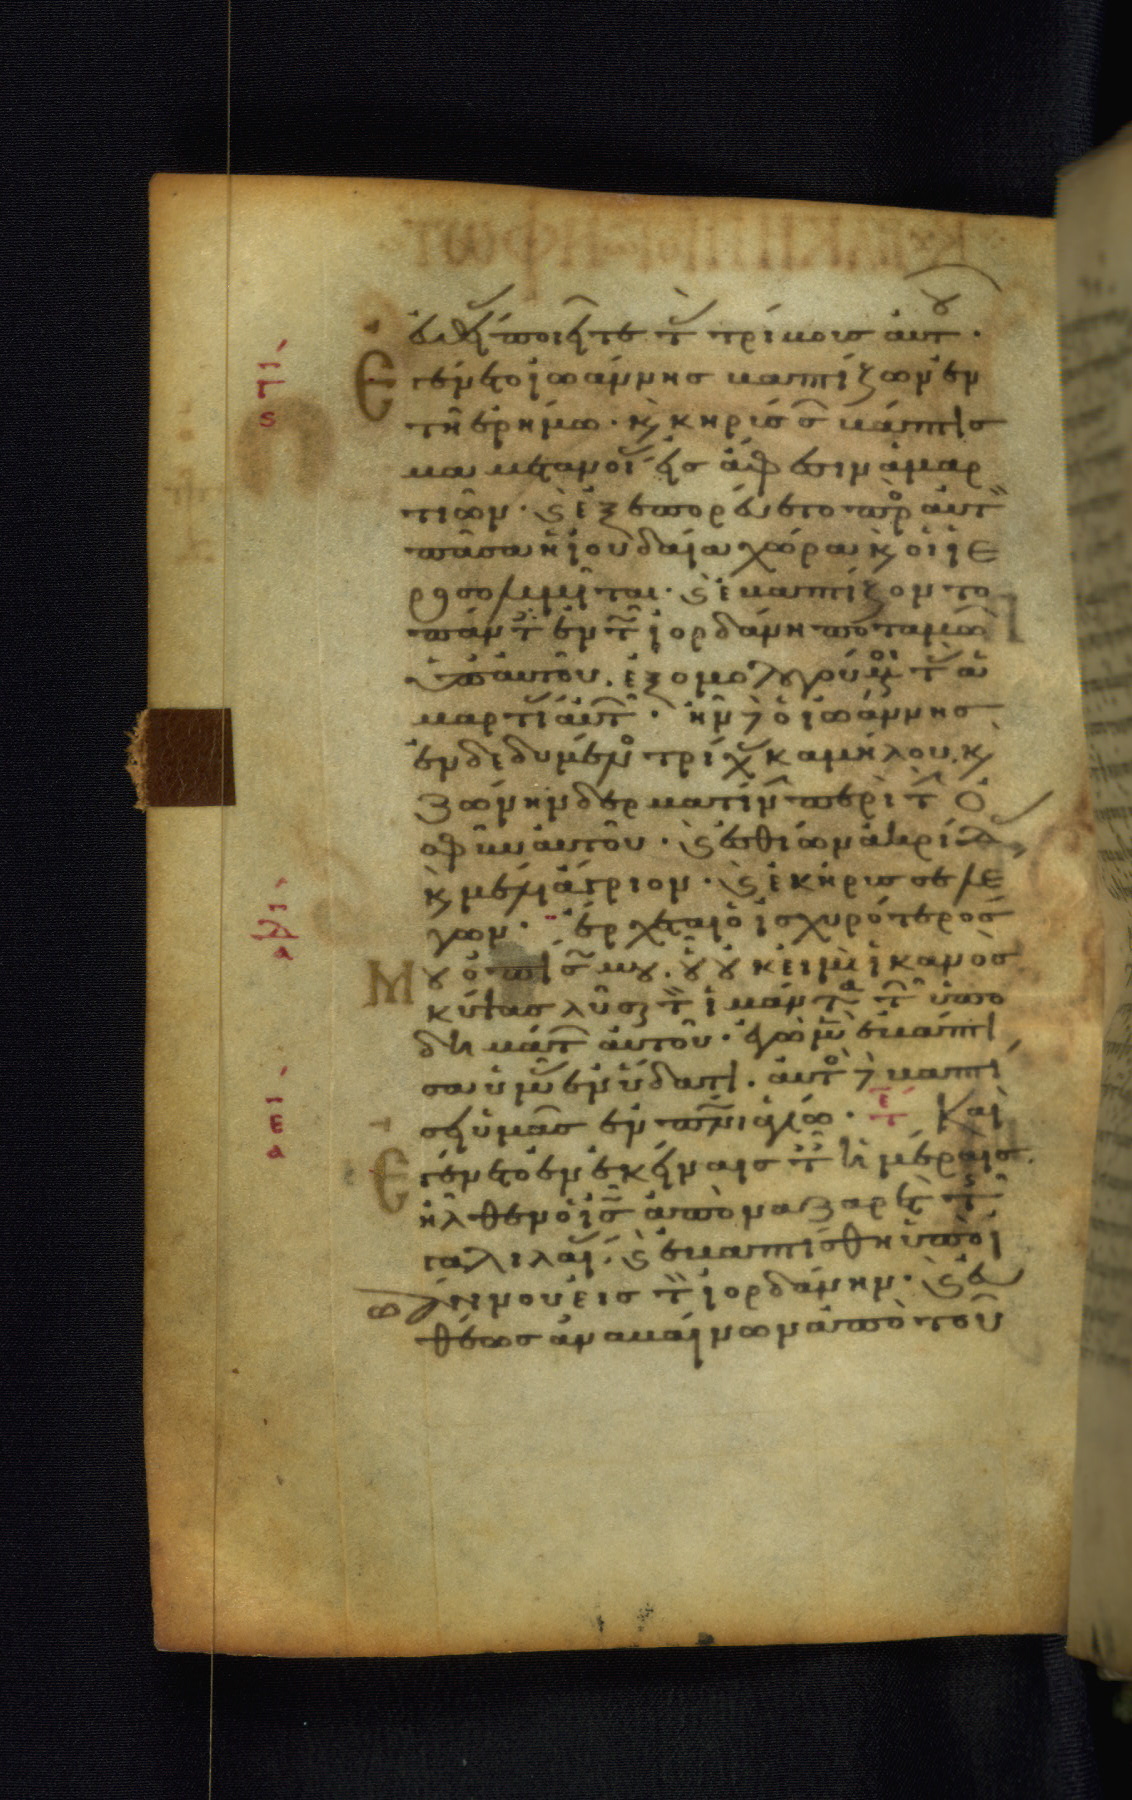 ἐυθεί ποιεῖτε τ τρίβοις αὐτ.
Ἐγένετο ἰωάννης βαπτίζων ἐν
τῆ ἐρήμω. κ κηρίσσ βάπτισ
μα μετανοί εἰς ἄφεσιν ἁμαρ
τιῶν. κ ἐξεπορεύετο πρ αὐτ
πᾶσα ἡ ἰουδαία χώρα κ οἱ ἱε
ροσολυμῖται. κ ἐβαπτίζοντο
πάντ ἐν τ ἰορδάνη ποταμῶ
ὑπ αὐτοῦ. ἐξομολογούμ τ ἁ
μαρτί αὐτ. ἦν δ ὁ ἰωάννης
ἐνδεδυμέν τρίχ καμήλου. κ
ζώνην δερματίν περὶ τ ὀ
σφὺν αὐτοῦ. κ ἐσθίων ἀκρίδ
κ μέλι ἄγριον. κ ἐκήρισσε λέ
γων. ἔρχεται ὁ ἰσχυρότερος
Μου ὀπίσ μου. οὗ οὐκ εἰμὶ ἱκανὸς
κύψας λῦσαι τ ἱμάντα τ ὑπο
δημάτ αὐτοῦ. ἐγὼ μ ἐβάπτι
σα ὑμ ἐν ὕδατι. αὐτο δ βαπτί
σει ὑμᾶς ἐν πνι ἁγίω. τε Καὶ
Ἐγένετο ἐν ἐκείναις τ ἡμέραις.
ἦλθεν ὁ ις ἀπὸ ναζαρετ τ
γαλιλαί. κ ἐβαπτίσθη ὑπὸ ἰ
ωάννου εἰς τ ἰορδάνην. κ εὐ
θέως ἀναβαίνων ἀπὸ τοῦ